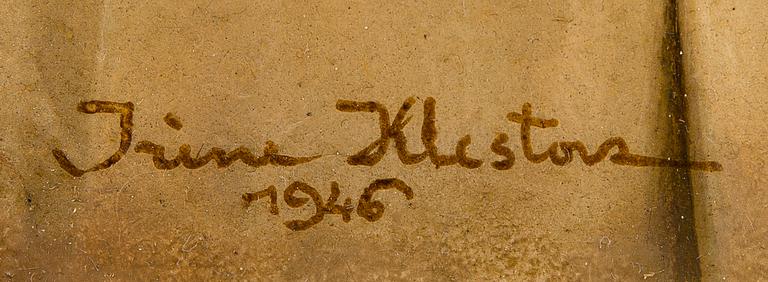 Irene Klestova
1946